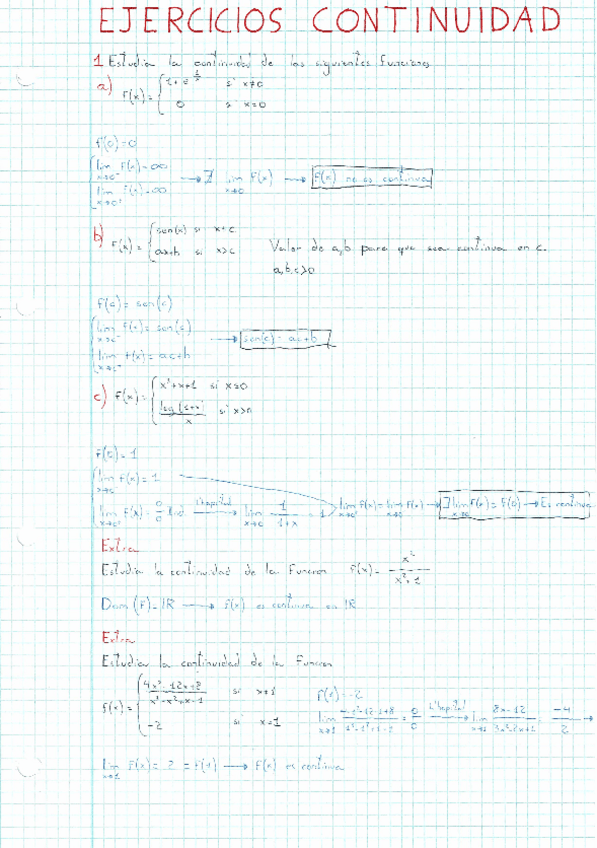 EJERCICIOS CONTINUIDAD
1 Estudia la continuidad de las siguientes funciones
a) F(x)= { 1+e^ si x≠0
0 si x=0
F(0)=0
lim F(x)=∞
x→0⁻
lim F(x)=∞
x→0⁺
→ ∄ lim F(x) → F(x) no es continua
x→0
b) F(x)= { sen(x) si x≤c
ax+b si x>c
Valor de a,b para que sea continua en c.
a,b,c>0
F(c)= sen(c)
lim F(x)= sen(c)
x→c⁻
→ sen(c)= ac+b
lim F(x)= ac+b
x→c⁺
c) F(x)= { x²+x+1 si x≤0
log(1+x)/x si x>0
F(0)=1
lim F(x)=1
x→0⁻
lim F(x)= 0/0 Ind L'hopital → lim 1/1+x = 1
x→0⁺ x→0
lim F(x)= lim F(x) → ∃ lim F(x)= F(0) → Es continua
Extra
Estudia la continuidad de la Funcion F(x)= x²/x²+1
Dom (F)= IR → F(x) es continua en IR
Extra
Estudia la continuidad de la Funcion
F(x)= { 4x²-12x+8/x³-x²+x-1 si x≠1
-2 si x=1
F(1)=-2
lim = 0/0 L'hopital → lim 8x-12/3x²-2x+1 = -4/2 →
x→1 x→1
lim F(x)= 2 = F(1) → F(x) es continua
x→1